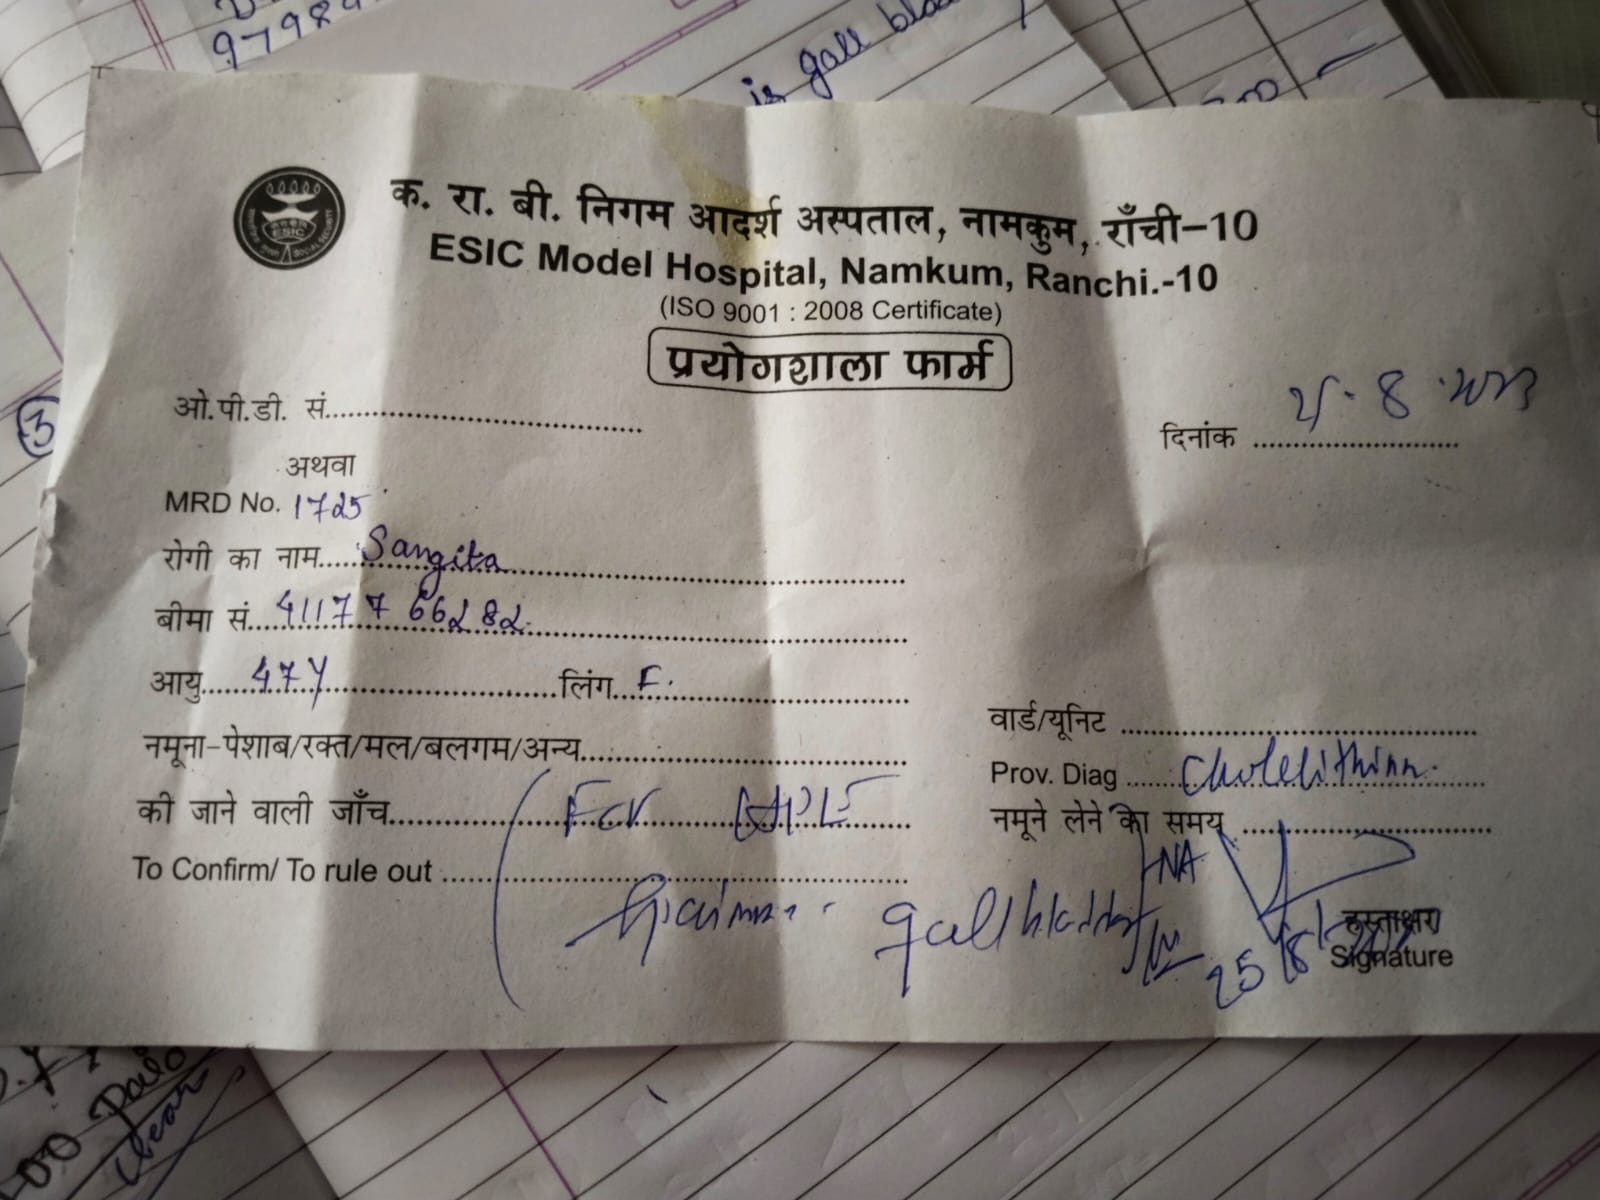 97984
is gall blad
क. रा. बी. निगम आदर्श अस्पताल, नामकुम, राँची–10
ESIC
ESIC Model Hospital, Namkum, Ranchi.-10
(ISO 9001 : 2008 Certificate)
प्रयोगशाला फार्म
3
ओ.पी.डी. सं.
दिनांक 25.8.2023
अथवा
MRD No. 1725
रोगी का नाम Sangita
बीमा सं. 4117766282
आयु 47Y लिंग F.
वार्ड/यूनिट
नमूना-पेशाब/रक्त/मल/बलगम/अन्य
Prov. Diag
की जाने वाली जाँच For HPE
नमूने लेने का समय
To Confirm/ To rule out
gall bladder
NA
हस्ताक्षर
25/8
Signature
Paid